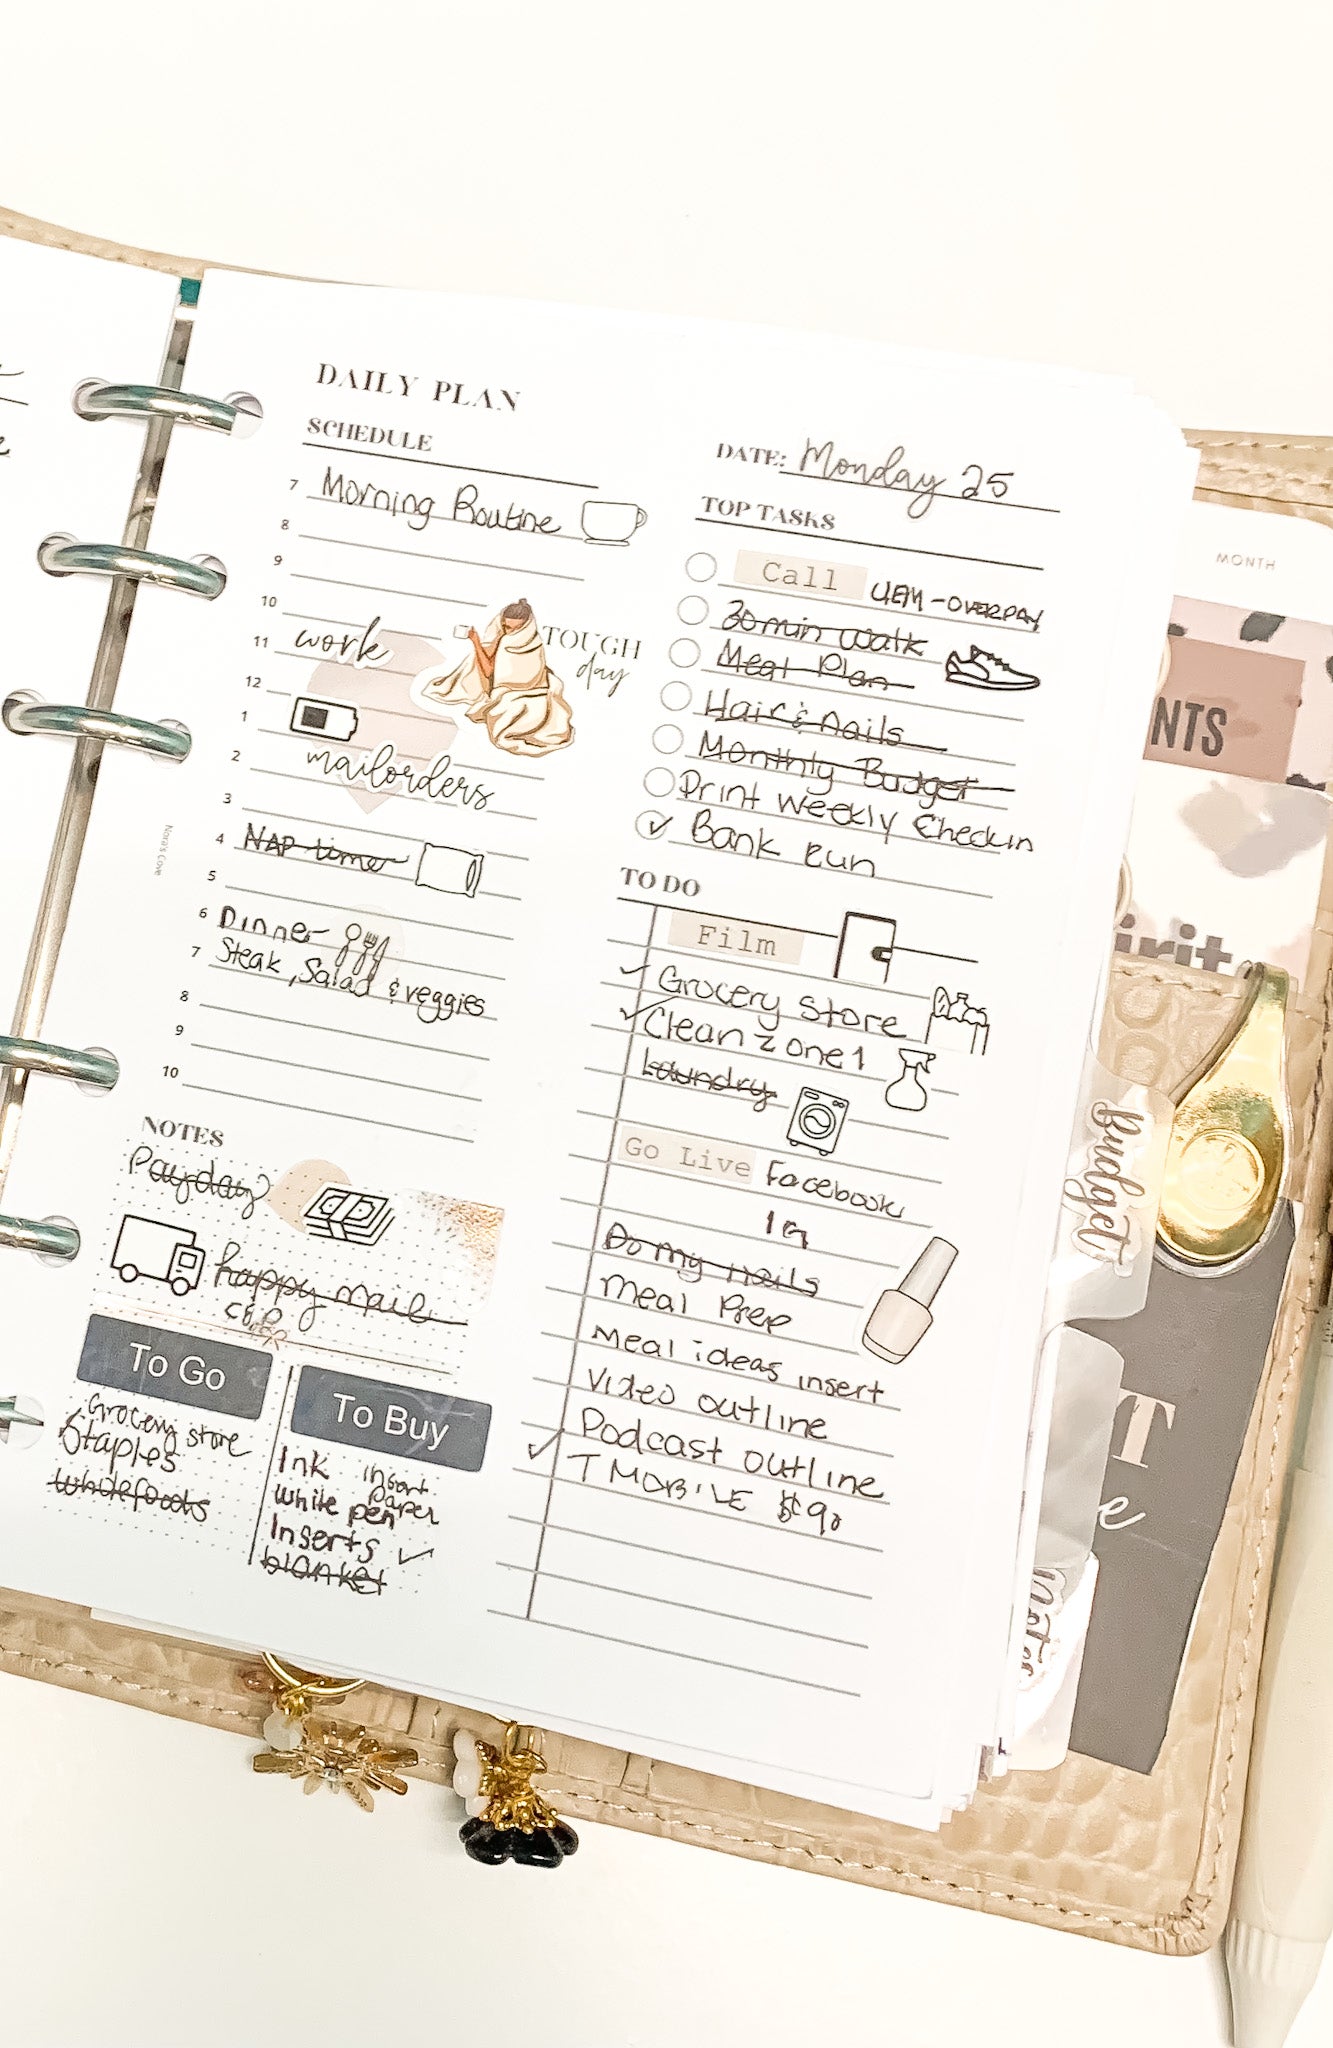 DAILY PLAN
SCHEDULE
7 Morning Routine
8
9
10
11 work
TOUGH
day
12
1
2 mailorders
3
4 NAP time
5
6 Dinner
7 Steak, Salad & veggies
8
9
10
Nora's Cove
NOTES
Payday
happy mail
To Go
Grocery store
Staples
wholefoods
To Buy
Ink insert
paper
white pen
Inserts ✓
blanket
DATE: Monday 25
TOP TASKS
Call - OVERPAY
30 min walk
Meal Plan
Hair & nails
Monthly Budget
Print weekly Checkin
✓ Bank Run
TO DO
Film
✓ Grocery store
✓ Clean zone 1
Laundry
Go Live Facebook
IG
Do my nails
Meal Prep
Meal ideas insert
Video outline
Podcast outline
✓ T MOBILE $90
MONTH
NTS
irit
Budget
T
e
Notes